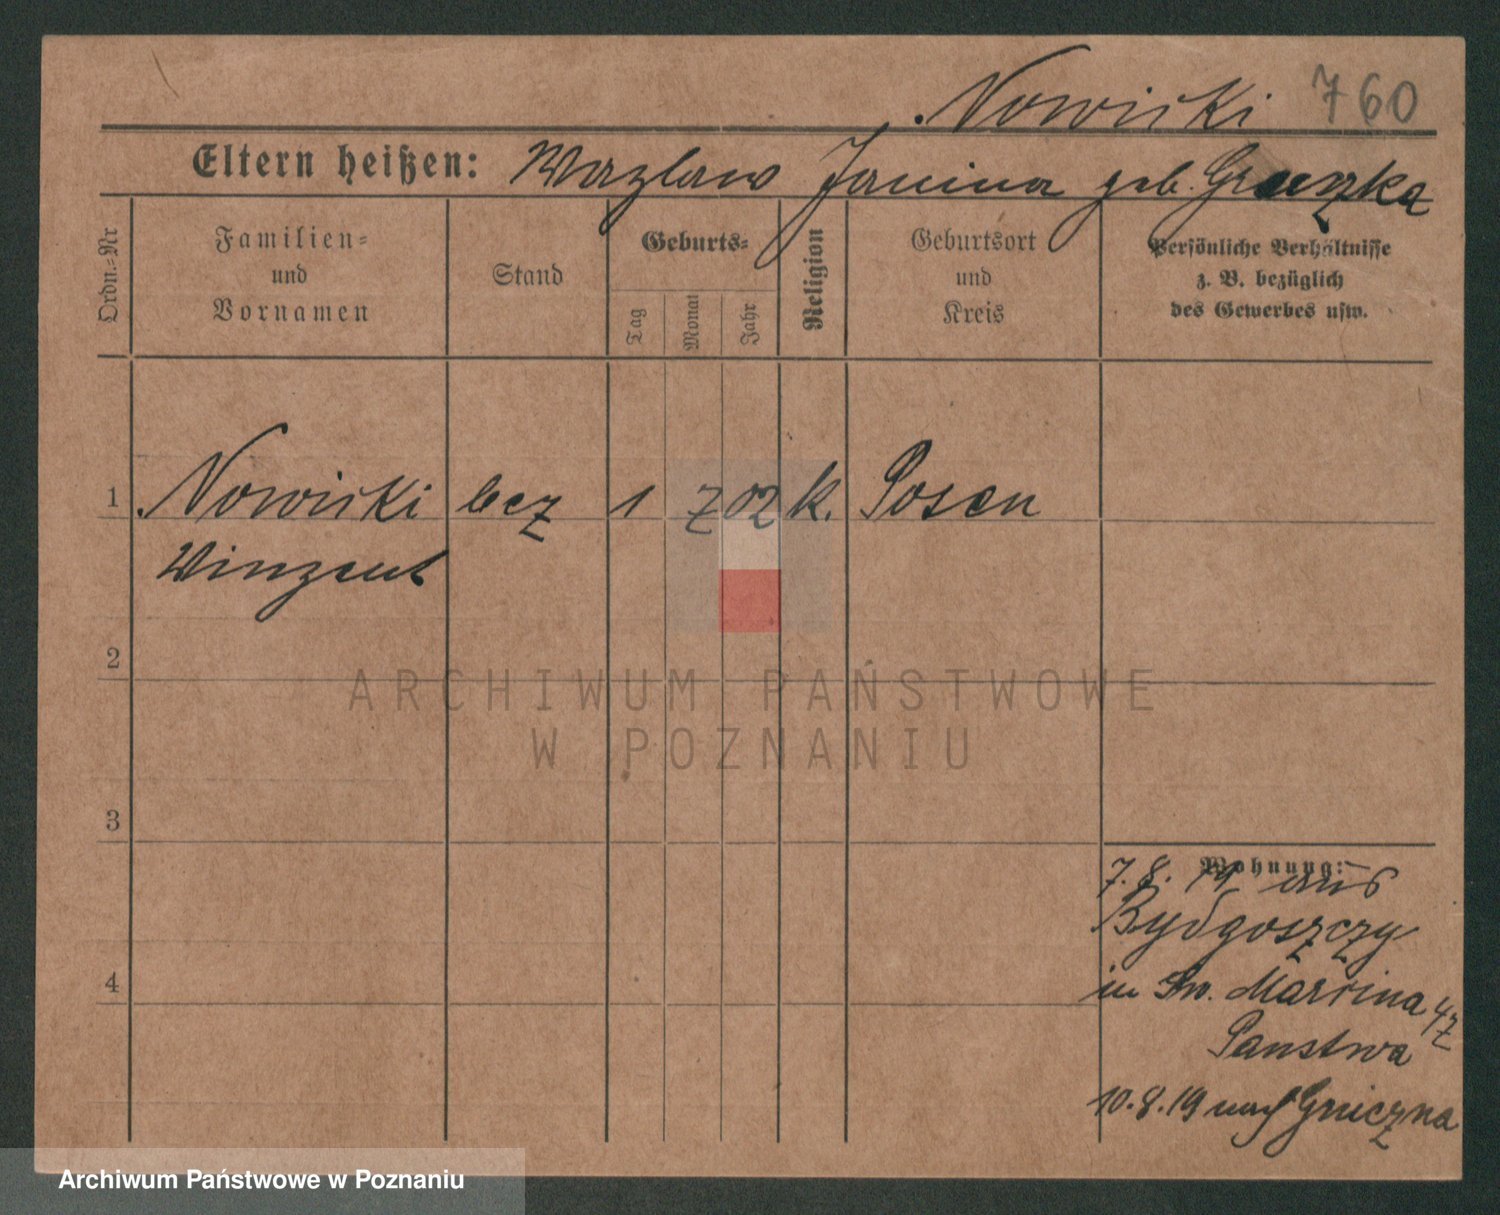 Nowicki 760
Eltern heißen: Wazlaw Janina geb.
Ordn.-Nr
Familien-
und
Vornamen
Stand
Geburts-
Tag
Monat
Jahr
Religion
Geburtsort
und
Kreis
Persönliche Verhältnisse
z. B. bezüglich
des Gewerbes usw.
1 Nowicki bez 1 7 02 k. Posen
Winzent
2
ARCHIWUM PAŃSTWOWE
W POZNANIU
3
Wohnung:
7. 8. 19 aus
Bydgoszczy
4
in Sw. Marcina 47
10.8.19 nach
Archiwum Państwowe w Poznaniu